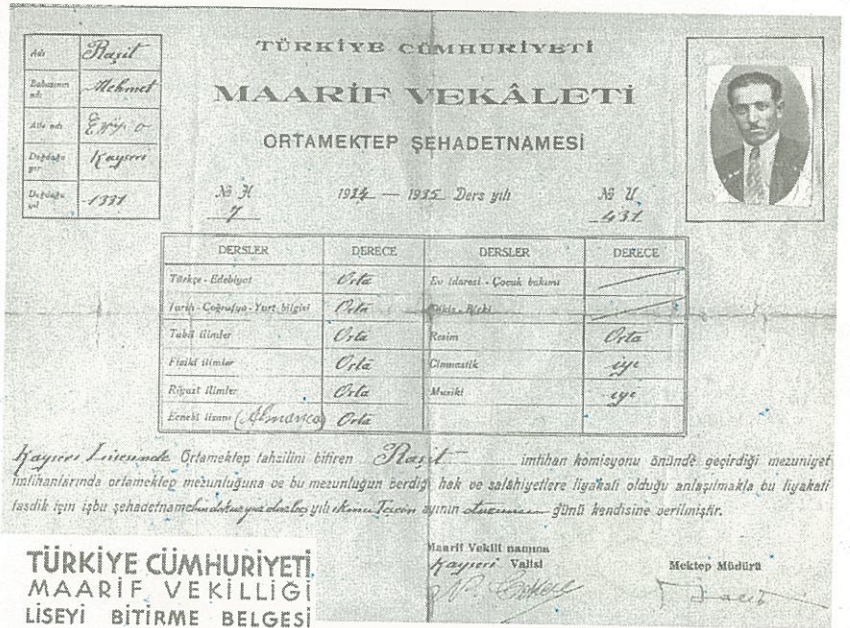 TÜRKİYE CÜMHURİYETİ
MAARİF VEKÂLETİ
ORTAMEKTEP ŞEHADETNAMESİ
Adı Raşit
Babasının adı Mehmet
Aile adı
Doğduğu yer Kayseri
Doğduğu yıl 1331
№ H 7
1934 — 1935 Ders yılı
№ U 431
DERSLER DERECE DERSLER DERECE
Türkçe - Edebiyat Orta Ev idaresi - Çocuk bakımı
Tarih - Coğrafya - Yurt bilgisi Orta
Tabiî ilimler Orta Resim Orta
Fizikî ilimler Orta Cimnastik iyi
Riyazî ilimler Orta Musiki iyi
Ecnebi lisanı (Almanca) Orta
Kayseri Lisesinde Ortamektep tahsilini bitiren Raşit imtihan komisyonu önünde geçirdiği mezuniyet
imtihanlarında ortamektep mezunluğuna ve bu mezunluğun verdiği hak ve salâhiyetlere liyakati olduğu anlaşılmakla bu liyakati
tasdik için işbu şehadetname yılı ayının günü kendisine verilmiştir.
Maarif Vekili namına
Kayseri Valisi
Mektep Müdürü
TÜRKİYE CÜMHURİYETİ
MAARİF VEKİLLİĞİ
LİSEYİ BİTİRME BELGESİ